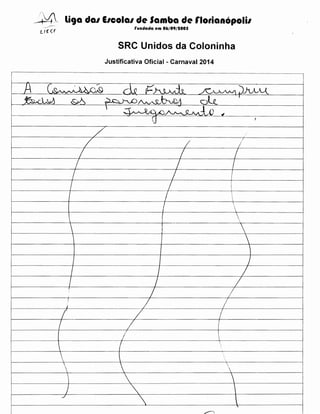 Liga das Escolas de Samba de Florianópolis
Fundada em 06/09/2005
LIESF
SRC Unidos da Coloninha
Justificativa Oficial - Carnaval 2014
A Comissão de Frente cumpriu
todos os parametros de
Julgamento.